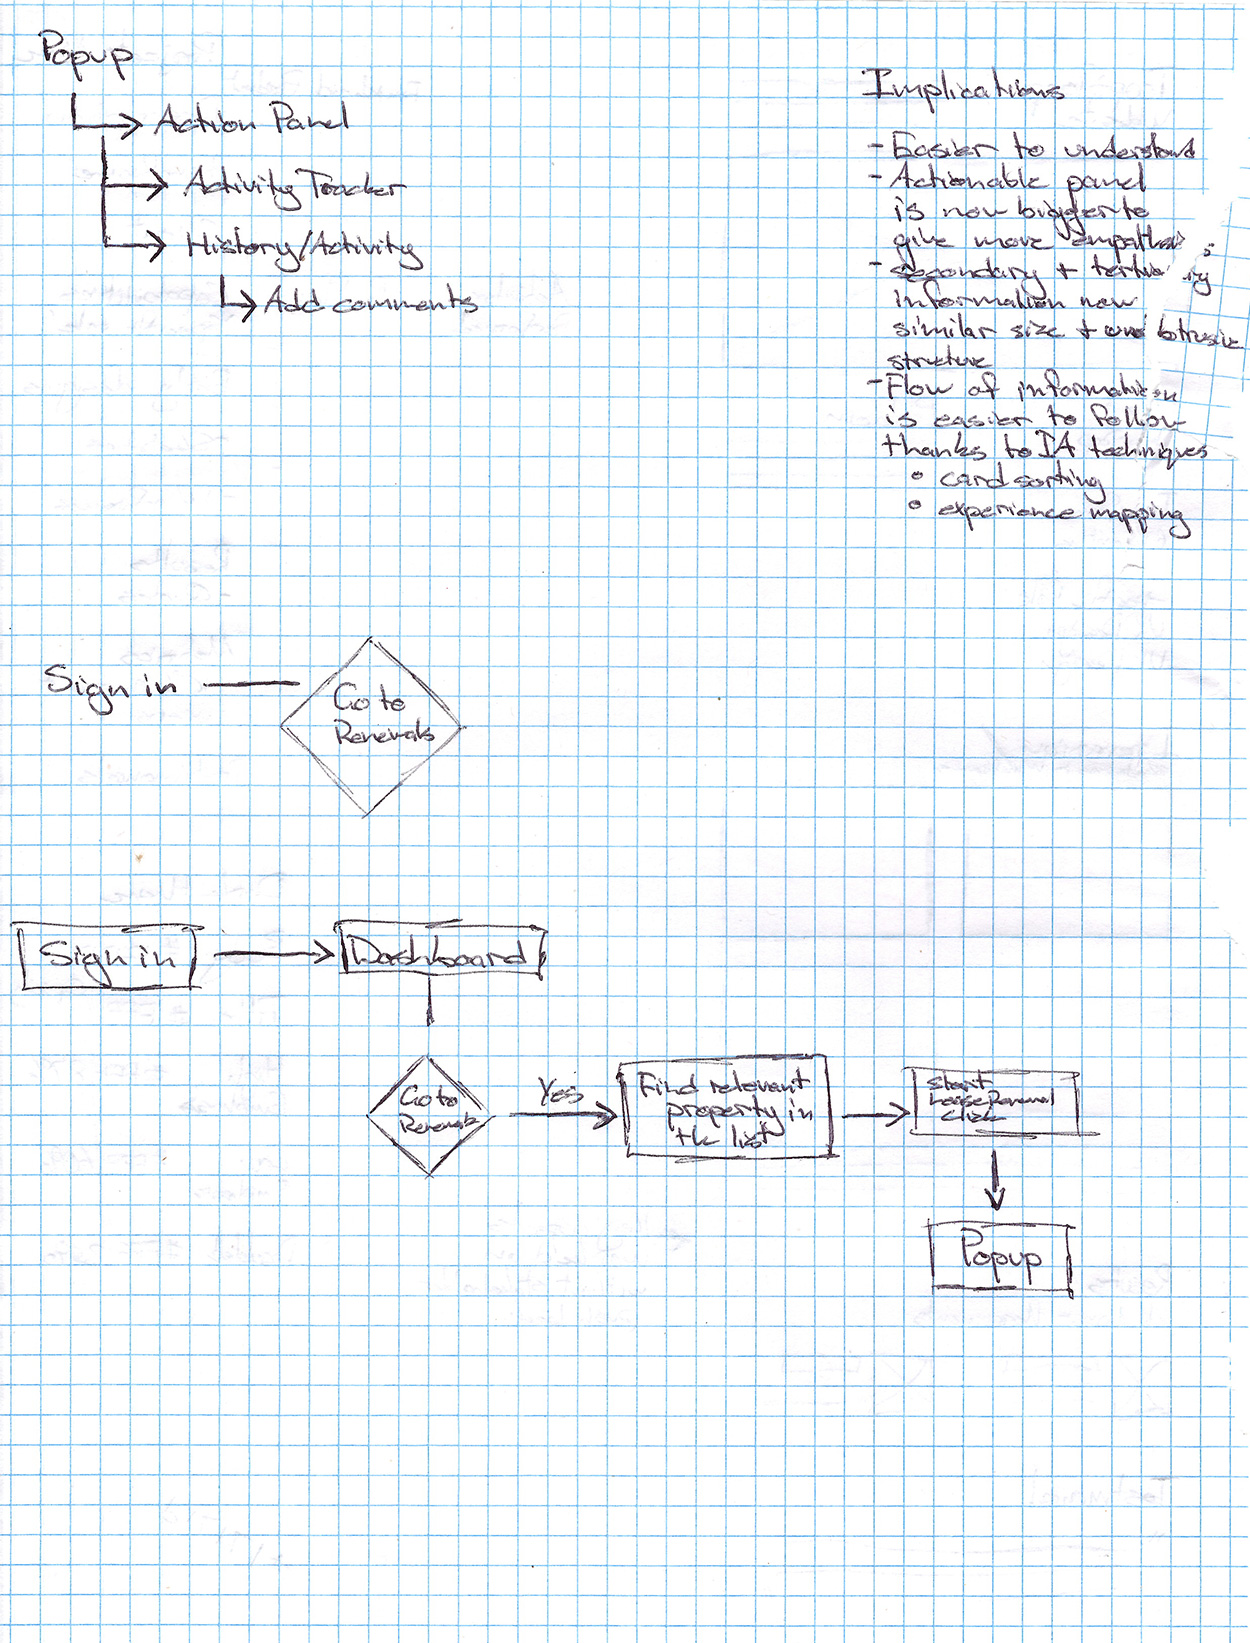 Popup
Action Panel
Activity Tracker
History/Activity
Add comments
Implications
- Easier to understand
- Actionable panel
is now bigger to
give more
- secondary +
information now
similar size +
structure
- Flow of information
is easier to follow
thanks to IA techniques
◦ card sorting
◦ experience mapping
Sign in
Go to
Renewals
Sign in
Dashboard
Go to
Renewals
Yes
Find relevant
property in
the list
start
Lease Renewal
click
Popup